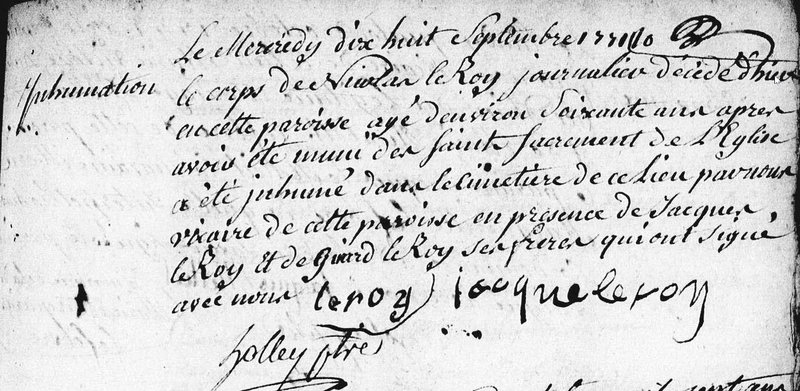 Le Mercredy dix huit Septembre 1771
Inhumation
le corps de Nicolas le Roy journalier décédé d'hier
en cette paroisse agé d'environ Soixante ans apres
avois été muni des Saints Sacrement de L'Eglise
a été jnhumé dans le Cimetiere de ce Lieu par nous
vicaire de cette paroisse en presence de Jacques
le Roy et de Girard le Roy ses freres qui ont signé
avec nous leroy jacque leroy
holley ptre